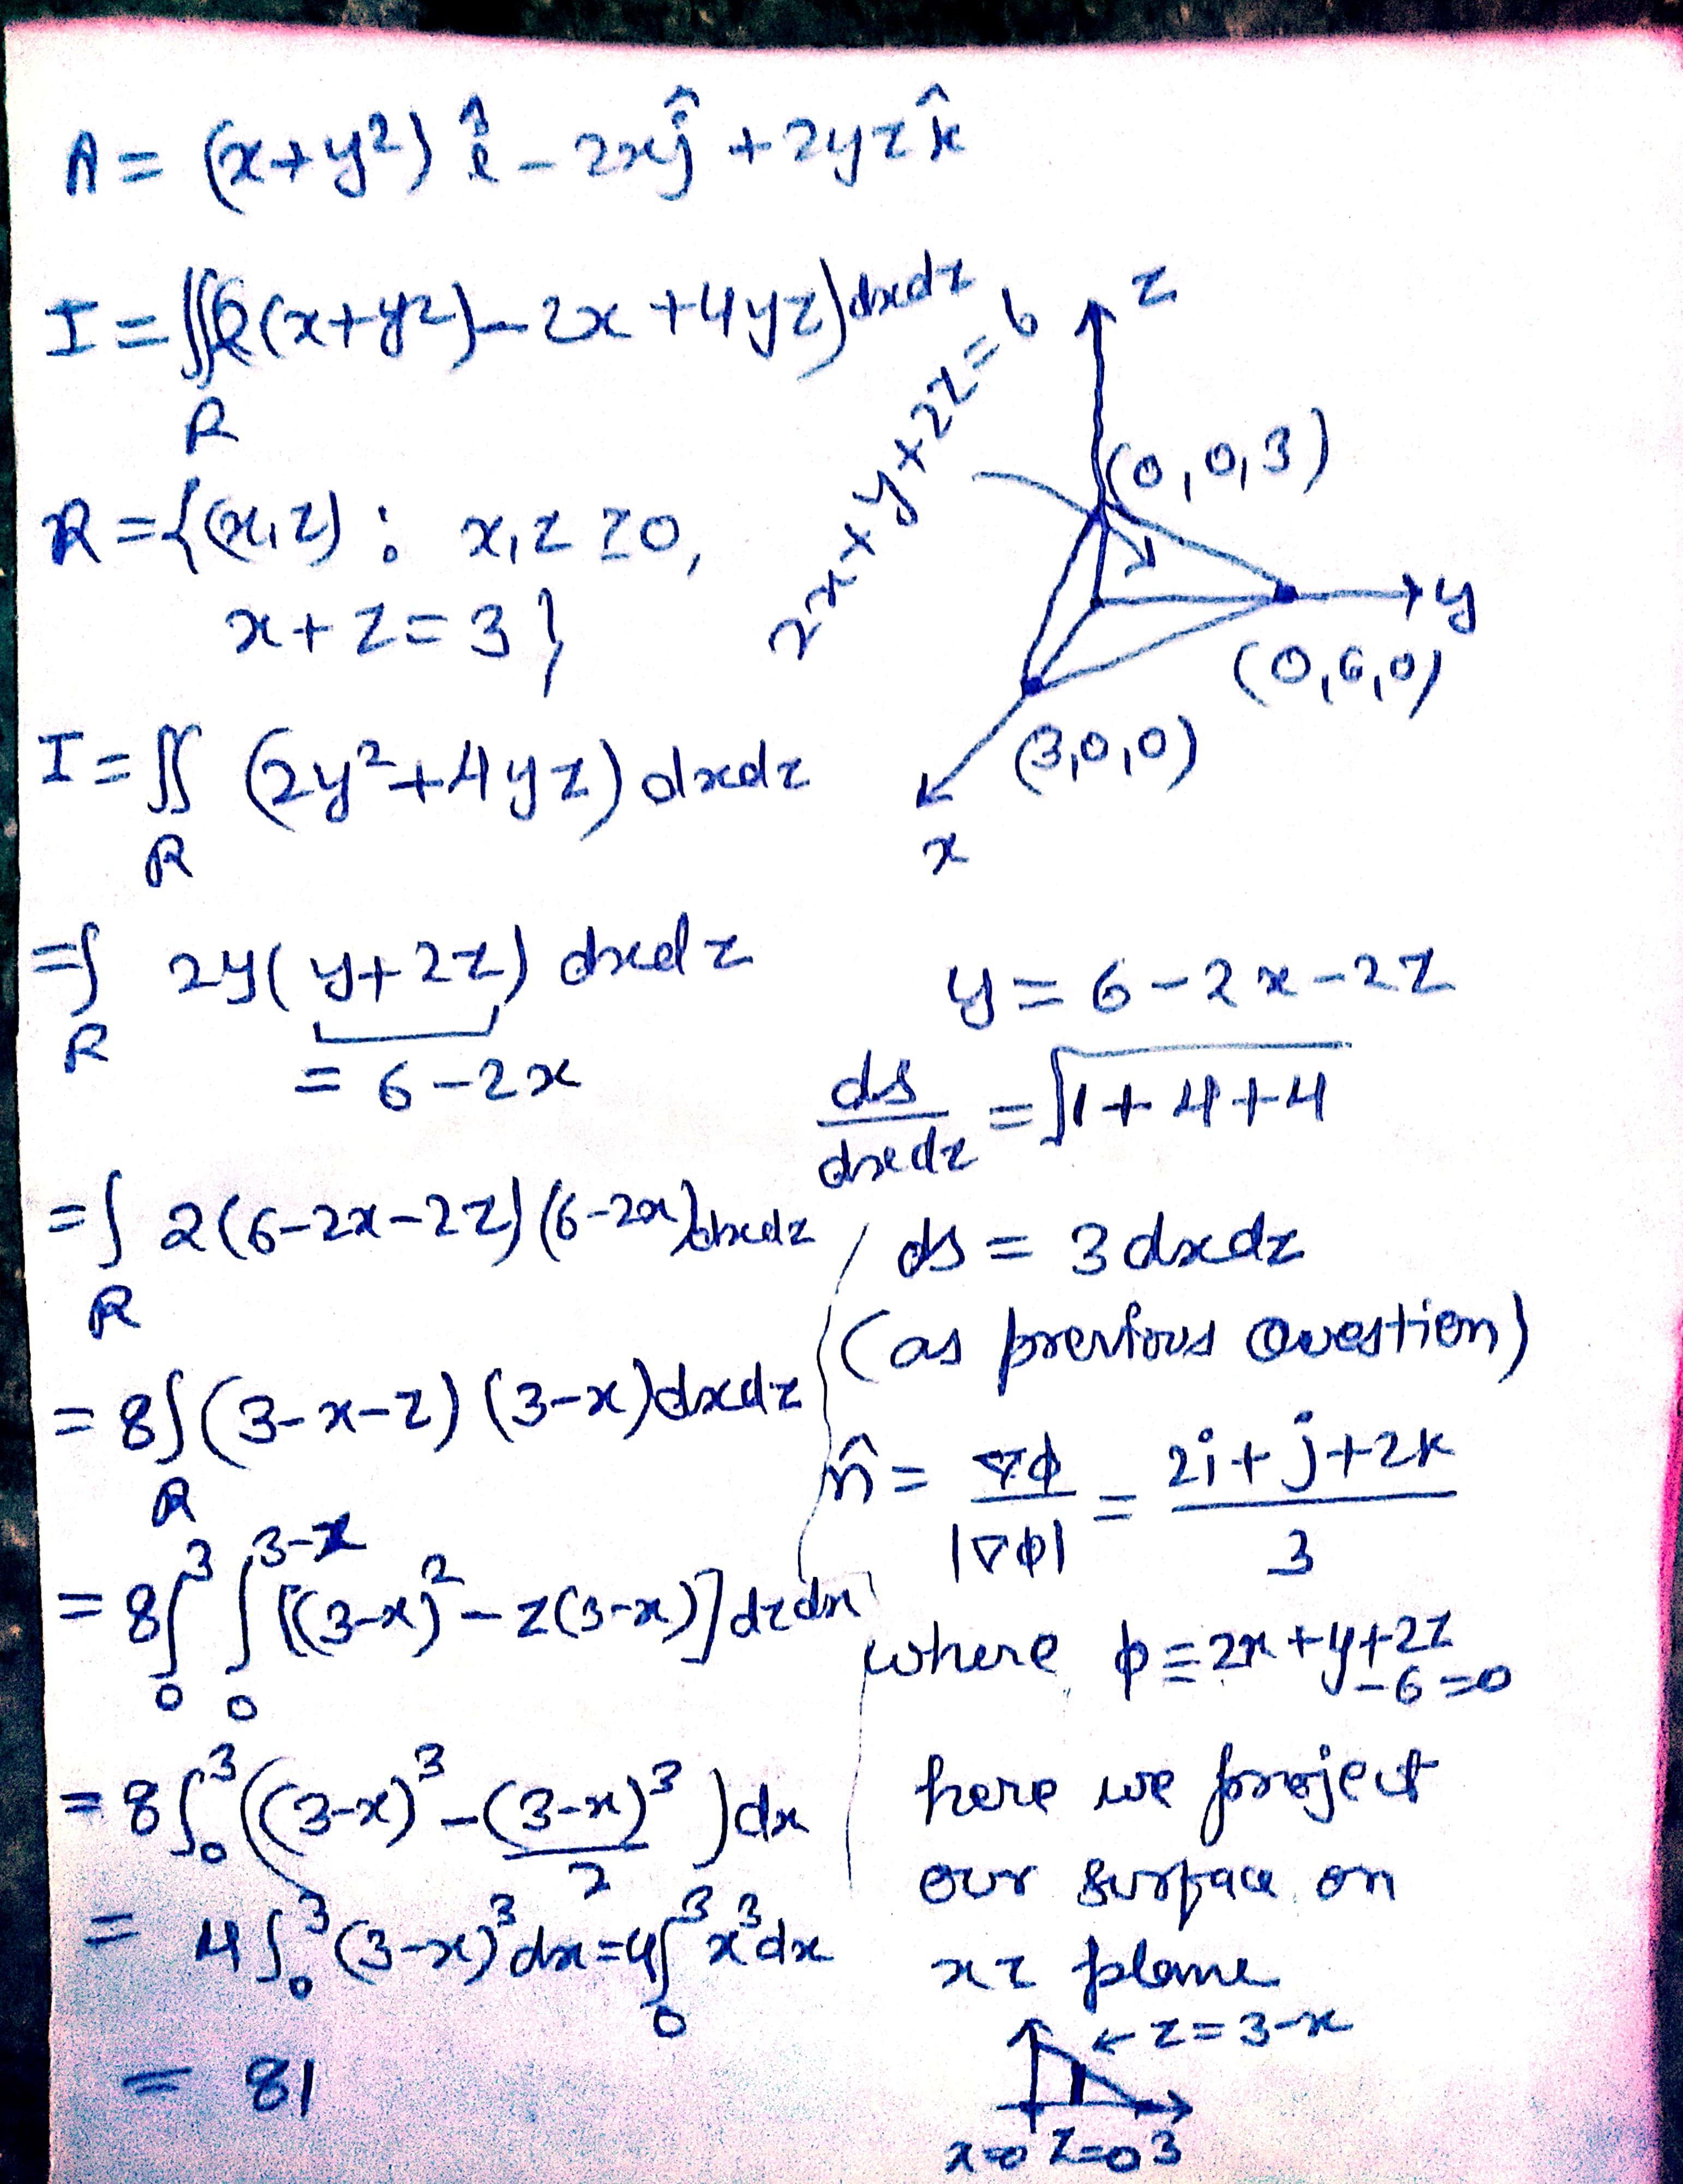 A = (x+y²) î - 2xĵ + 2yzk̂
I = ∬(2(x+y²) - 2x + 4yz) dxdz
R
R = {(x,z) : x,z ≥ 0,
x+z = 3}
2x+y+2z=6
z
(0,0,3)
y
(0,6,0)
(3,0,0)
x
I = ∬ (2y²+4yz) dxdz
R
= ∫ 2y(y+2z) dxdz
R
= 6-2x
= ∫ 2(6-2x-2z)(6-2x)dxdz
R
= 8∫(3-x-z)(3-x)dxdz
R
= 8∫₀³ ∫₀³⁻ˣ [(3-x)² - z(3-x)] dzdx
= 8∫₀³ ((3-x)³ - (3-x)³/2) dx
= 4∫₀³(3-x)³dx = 4∫₀³x³dx
= 81
y = 6-2x-2z
ds/dxdz = √1+4+4
ds = 3dxdz
(as previous Question)
n̂ = ∇φ/|∇φ| = 2i+j+2k/3
where φ ≡ 2x+y+2z
-6=0
here we project
our surface on
xz plane
← z=3-x
x=0 z=0 3